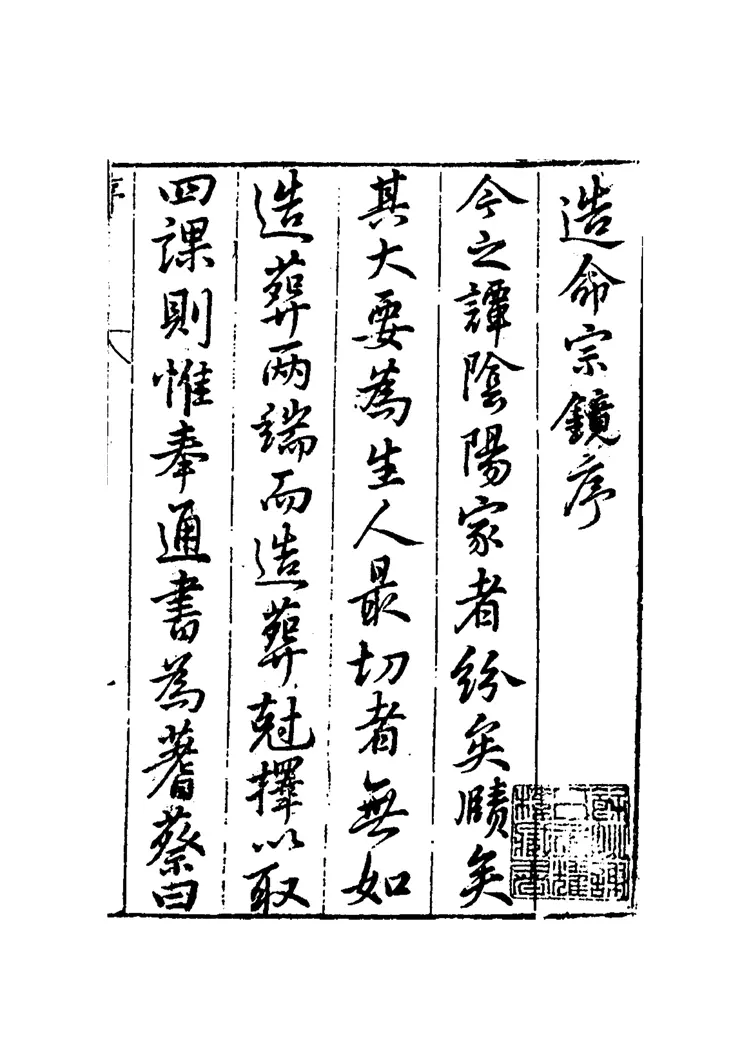 造命宗鏡序
今之譚陰陽家者紛矣賾矣
其大要為生人最切者無如
造葬兩端而造葬尅擇以取
四課則惟奉通書為蓍蔡曰
序